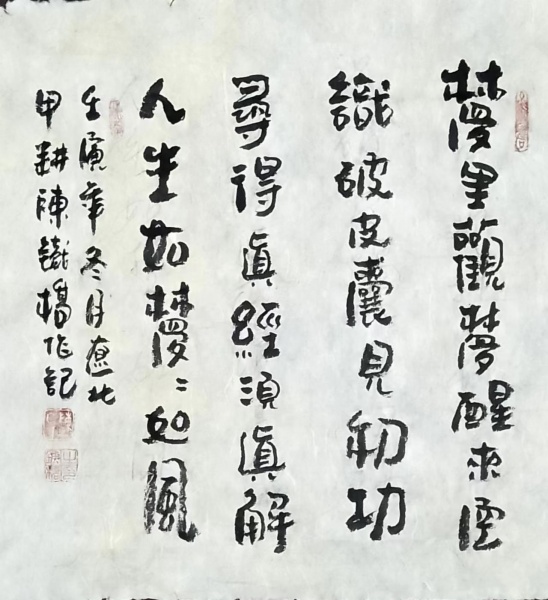 夢里觀夢醒來空
識破皮囊見初功
尋得真經須真解
人生如夢〻如風
壬寅年冬月遼北
甲耕陳鐵楊作記